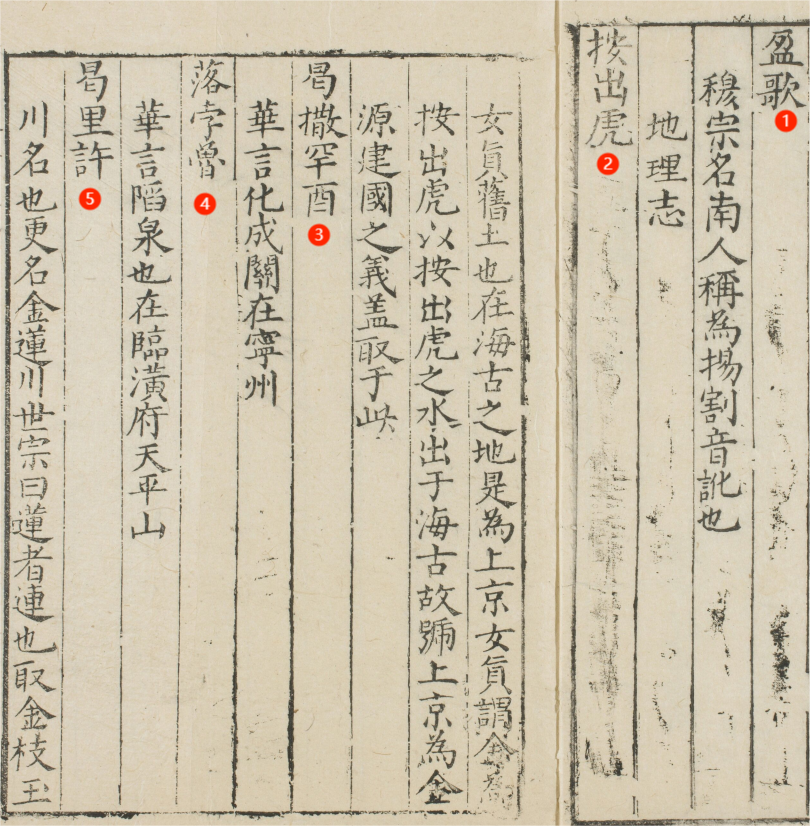 盈歌
❶
穆宗名南人稱為揚割音訛也
地理志
按出虎
❷
女真舊土也在海古之地是為上京女真謂金為
按出虎以按出虎之水出于海古故號上京為金
源建國之義盖取于此
曷撒罕酉
❸
華言化成關在寧州
落孛魯
❹
華言陷泉也在臨潢府天平山
曷里許
❺
川名也更名金蓮川世宗曰蓮者連也取金枝玉